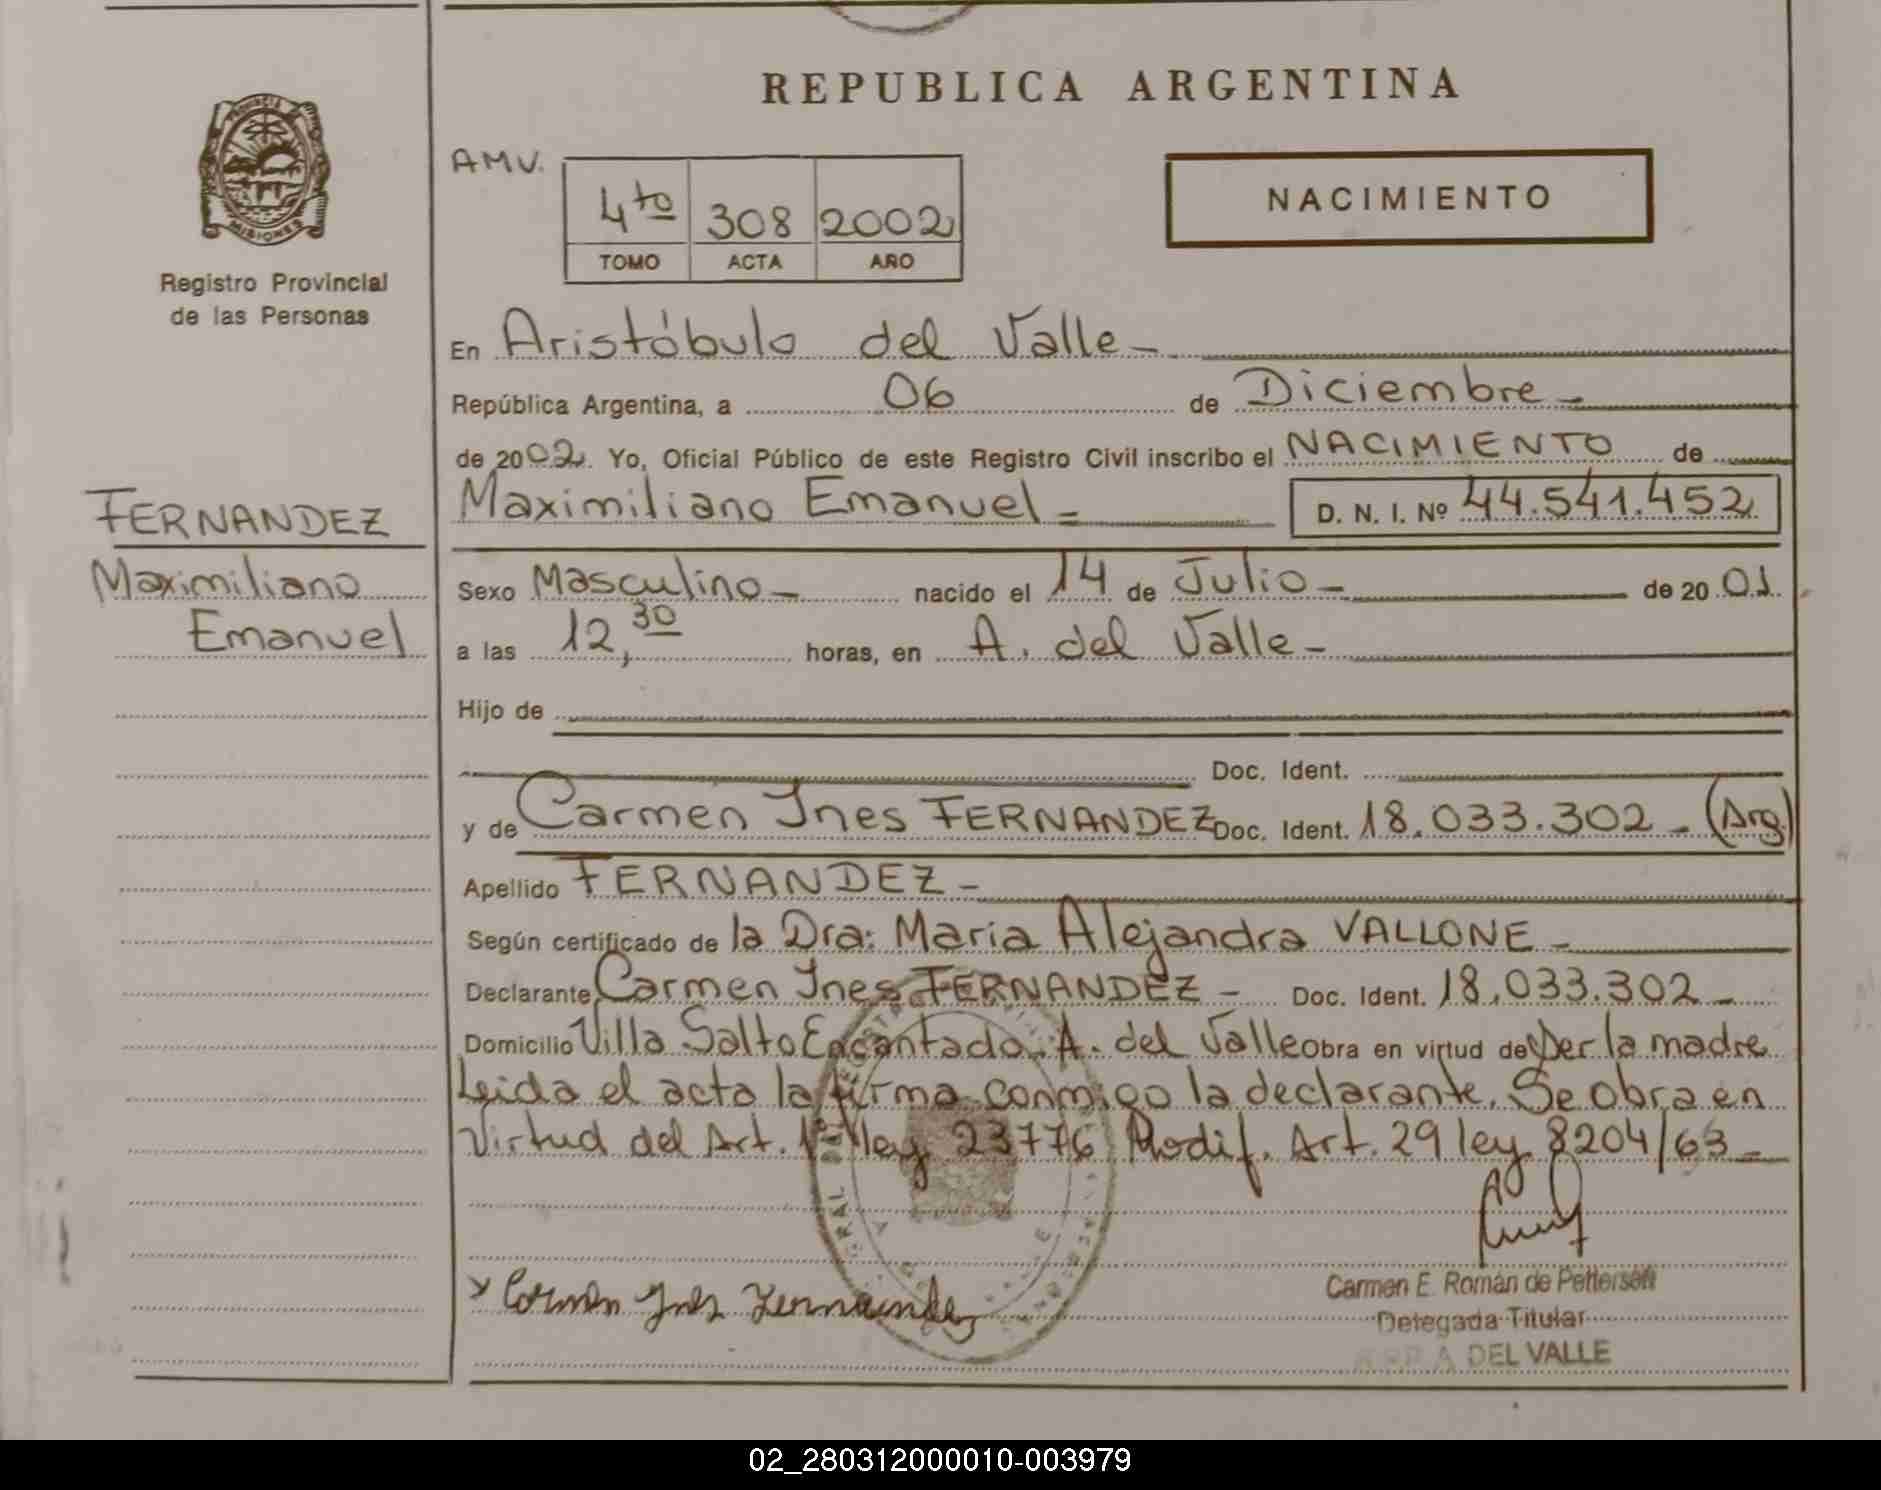 REPUBLICA ARGENTINA
PROVINCIA
MISIONES
Registro Provincial
de las Personas
AMV.
4to 308 2002
TOMO ACTA AÑO
NACIMIENTO
En Aristóbulo del Valle
República Argentina, a 06 de Diciembre
de 2002. Yo, Oficial Público de este Registro Civil inscribo el NACIMIENTO de
FERNANDEZ
Maximiliano
Emanuel
Maximiliano Emanuel D. N. I. Nº 44.541.452
Sexo Masculino nacido el 14 de Julio de 2001
a las 12,30 horas, en A. del Valle
Hijo de
Doc. Ident.
y de Carmen Ines FERNANDEZ Doc. Ident. 18.033.302 (Arg.)
Apellido FERNANDEZ
Según certificado de la Dra: Maria Alejandra VALLONE
Declarante Carmen Ines FERNANDEZ Doc. Ident. 18.033.302
Domicilio Villa Salto Encantado. A. del Valle obra en virtud de Ser la madre
Leida el acta la firma conmigo la declarante. Se obra en
Virtud del Art. 1º ley 23776 Modif. Art. 29 ley 8204/63
Carmen Ines Fernandez
Carmen E. Román de Pettersen
Delegada Titular
A DEL VALLE
02_280312000010-003979